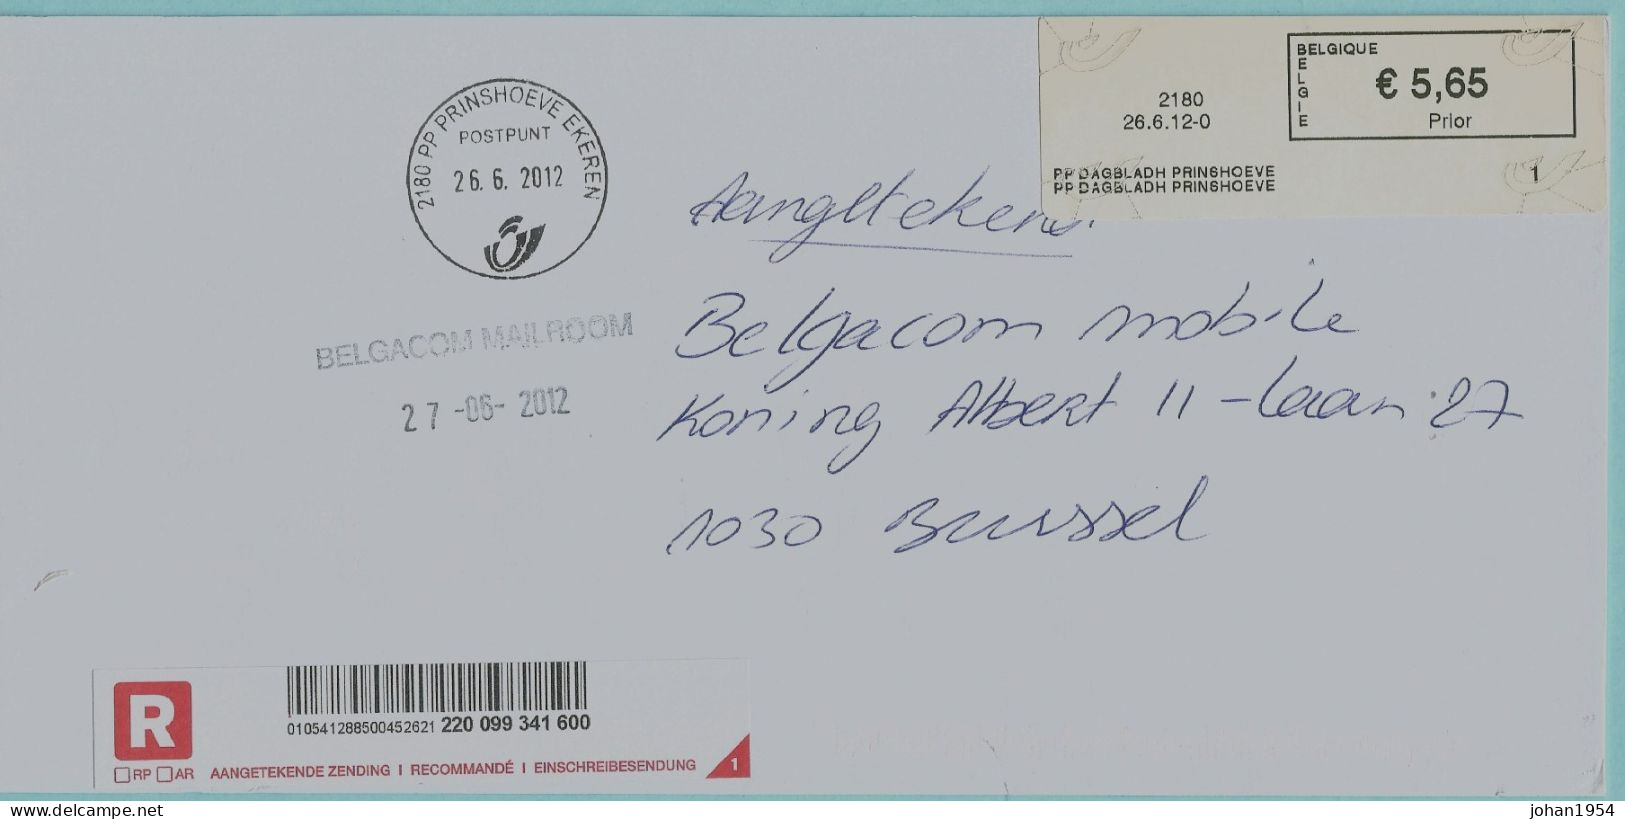 2180 PP PRINSHOEVE EKEREN
POSTPUNT
26. 6. 2012
BELGIQUE
BELGIE
€ 5,65
Prior
2180
26.6.12-0
PP DAGBLADH PRINSHOEVE
PP DAGBLADH PRINSHOEVE
1
Aangetekend.
BELGACOM MAILROOM
27 -06- 2012
Belgacom mobile
Koning Albert II-laan 27
1030 Brussel
R
010541288500452621 220 099 341 600
RP AR AANGETEKENDE ZENDING I RECOMMANDÉ I EINSCHREIBESENDUNG 1
www.delcampe.net
johan1954